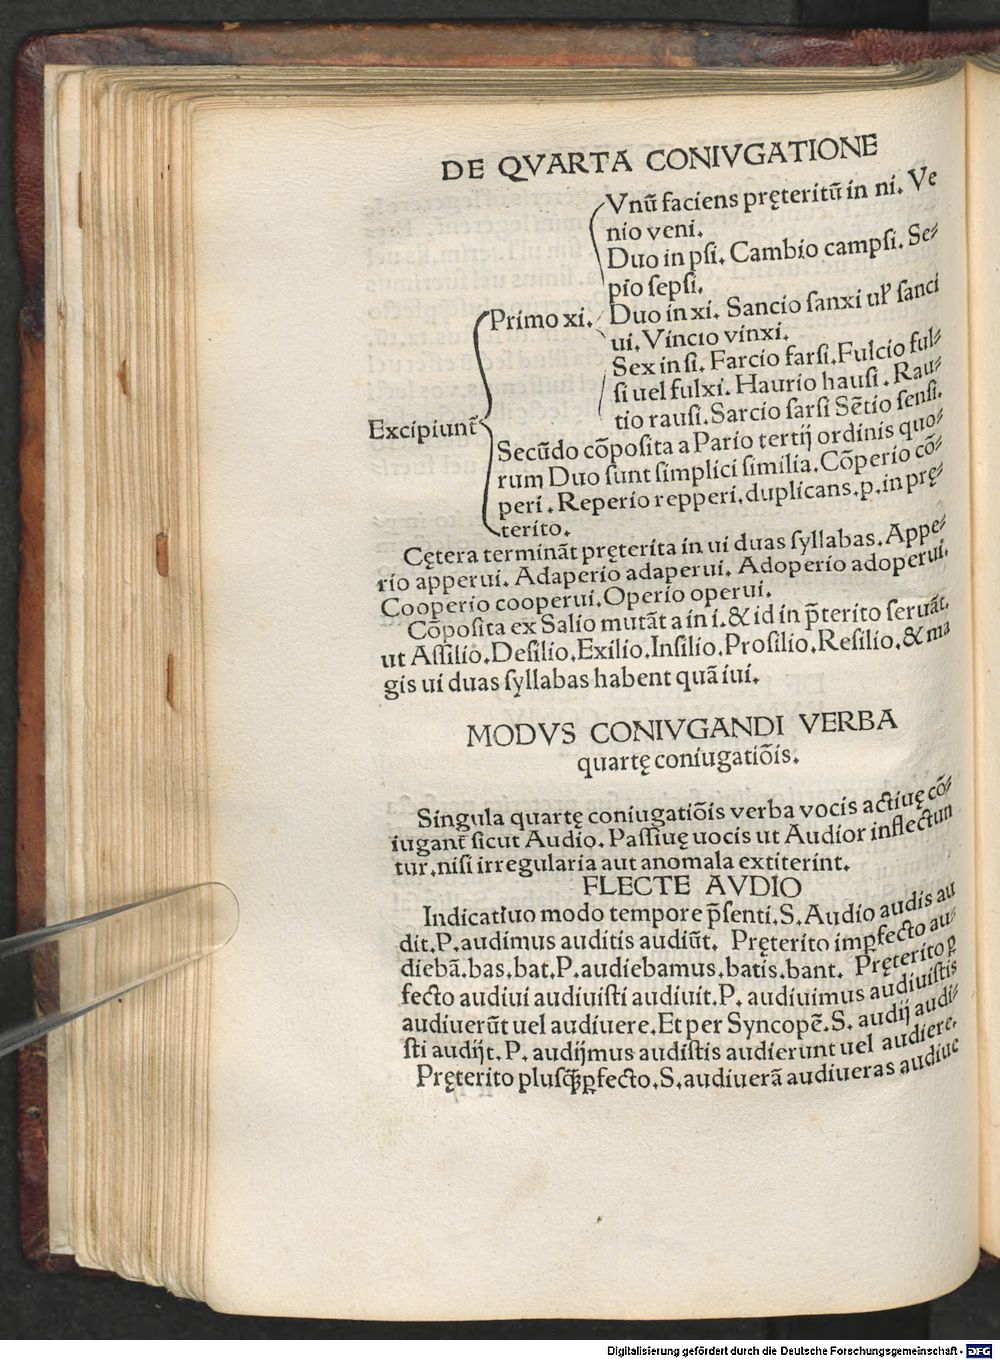 DE QVARTA CONIVGATIONE
Vnũ faciens pręteritũ in ni. Ve
nio veni.
Duo in pſi. Cambio campſi. Se⸗
pio ſepſi.
Primo xi. Duo in xi. Sancio ſanxi ul᷑ ſanci
ui. Vincio vinxi.
Sex in ſi. Farcio farſi. Fulcio ful⸗
ſi uel fulxi. Haurio hauſi. Rau⸗
tio rauſi. Sarcio ſarſi Sẽtio ſenſi.
Excipiunt᷑
Secũdo cõpoſita a Pario tertij ordinis quo⸗
rum Duo ſunt ſimplici ſimilia. Cõperio cõ⸗
peri. Reperio repperi. duplicans. p. in prę⸗
terito.
Cętera terminãt pręterita in ui duas ſyllabas. Appe⸗
rio apperui. Adaperio adaperui. Adoperio adoperui.
Cooperio cooperui. Operio operui.
Cõpoſita ex Salio mutãt a in i. & id in p̃terito ſeruãt.
ut Aſſilio. Deſilio. Exilio. Inſilio. Proſilio. Reſilio. & ma
gis ui duas ſyllabas habent quã iui.
MODVS CONIVGANDI VERBA
quartę coniugatiõis.
Singula quartę coniugatiõis verba vocis actiuę cõ⸗
iugant᷑ ſicut Audio. Paſſiuę uocis ut Audior inflectun
tur. niſi irregularia aut anomala extiterint.
FLECTE AVDIO
Indicatiuo modo tempore p̃ſenti. S. Audio audis au
dit. P. audimus auditis audiũt. Pręterito imꝑfecto au⸗
diebã. bas. bat. P. audiebamus. batis. bant. Pręterito ꝑ
fecto audiui audiuiſti audiuit. P. audiuimus audiuiſtis
audiuerũt uel audiuere. Et per Syncopẽ. S. audij audi⸗
ſti audijt. P. audijmus audiſtis audierunt uel audiere.
Pręterito pluſq̃ꝑfecto. S. audiuerã audiueras audiue
Digitalisierung gefördert durch die Deutsche Forschungsgemeinschaft - DFG